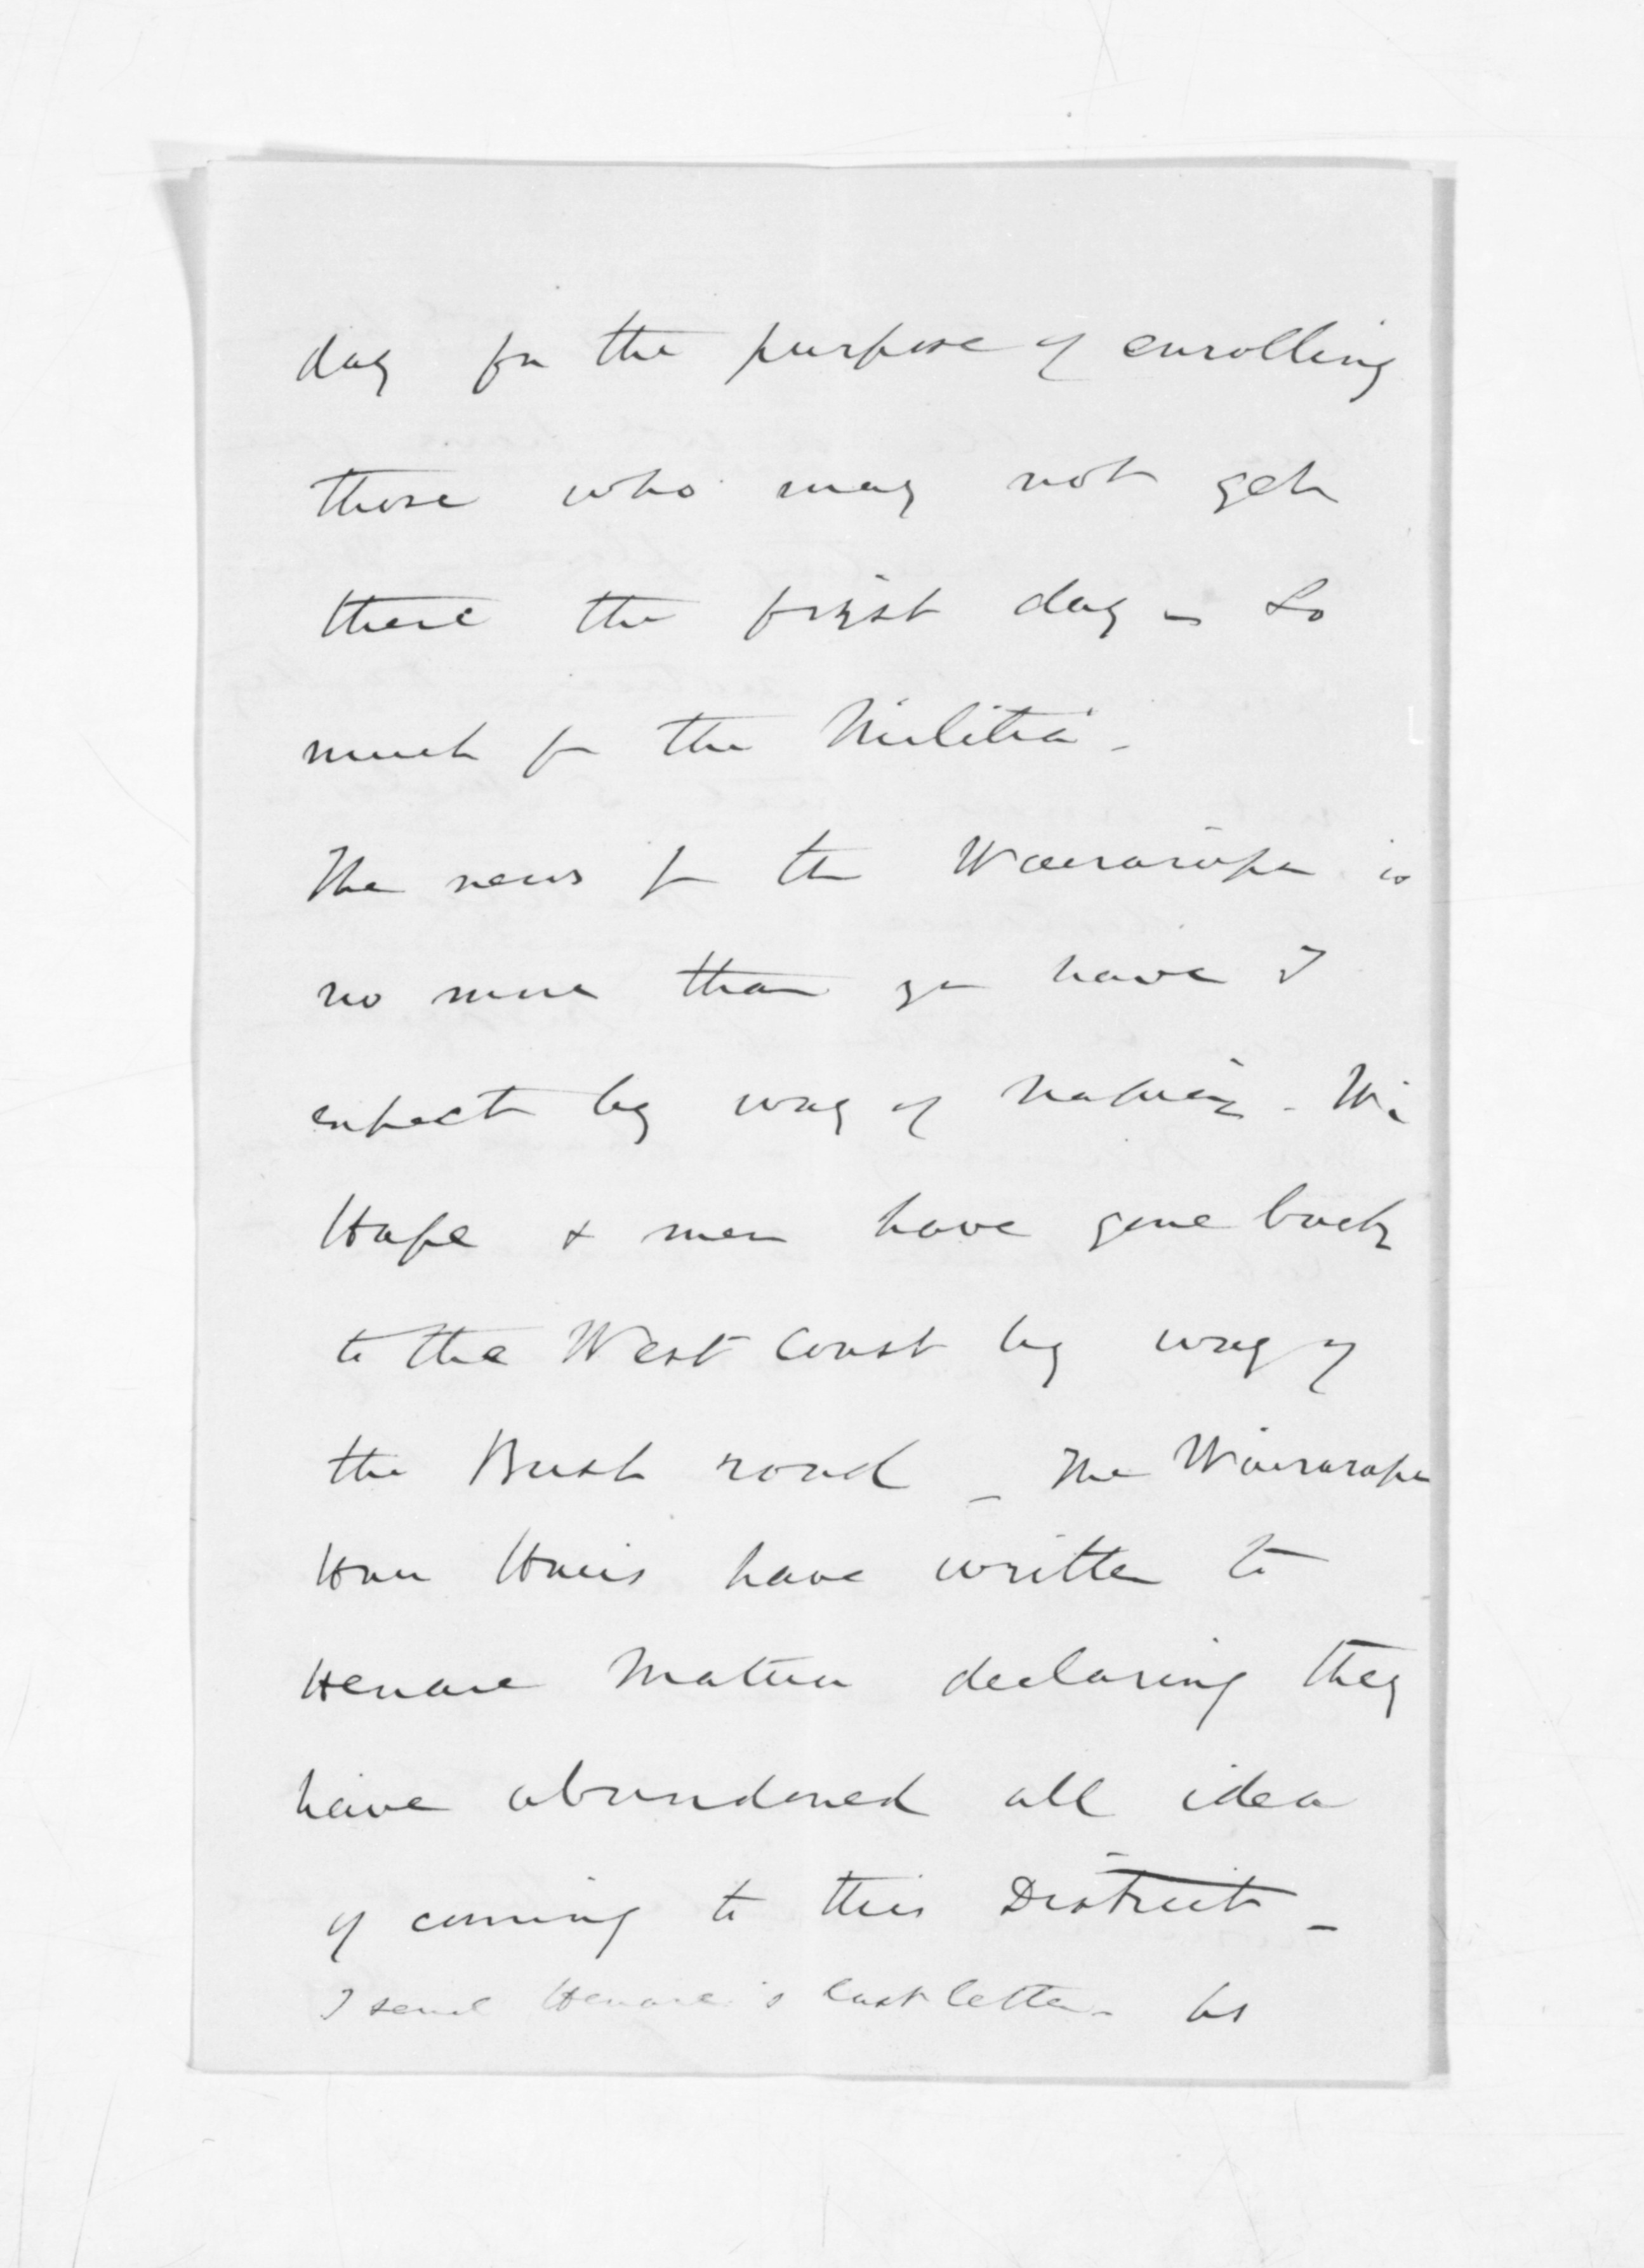 day for the purpose of enrolling
those who may not get
there the first day – So
much for the Militia –
The news fr the Wairarapa is
no more than you have I
expect by way of Napier – Wi
Hape & men have gone back
to the West Coast by way of
the Bush road – The Wairarapa
Hau Haus have written to
Henare Matua declaring they
have abandoned all idea
of coming to this District –
I send Henare's last letter –